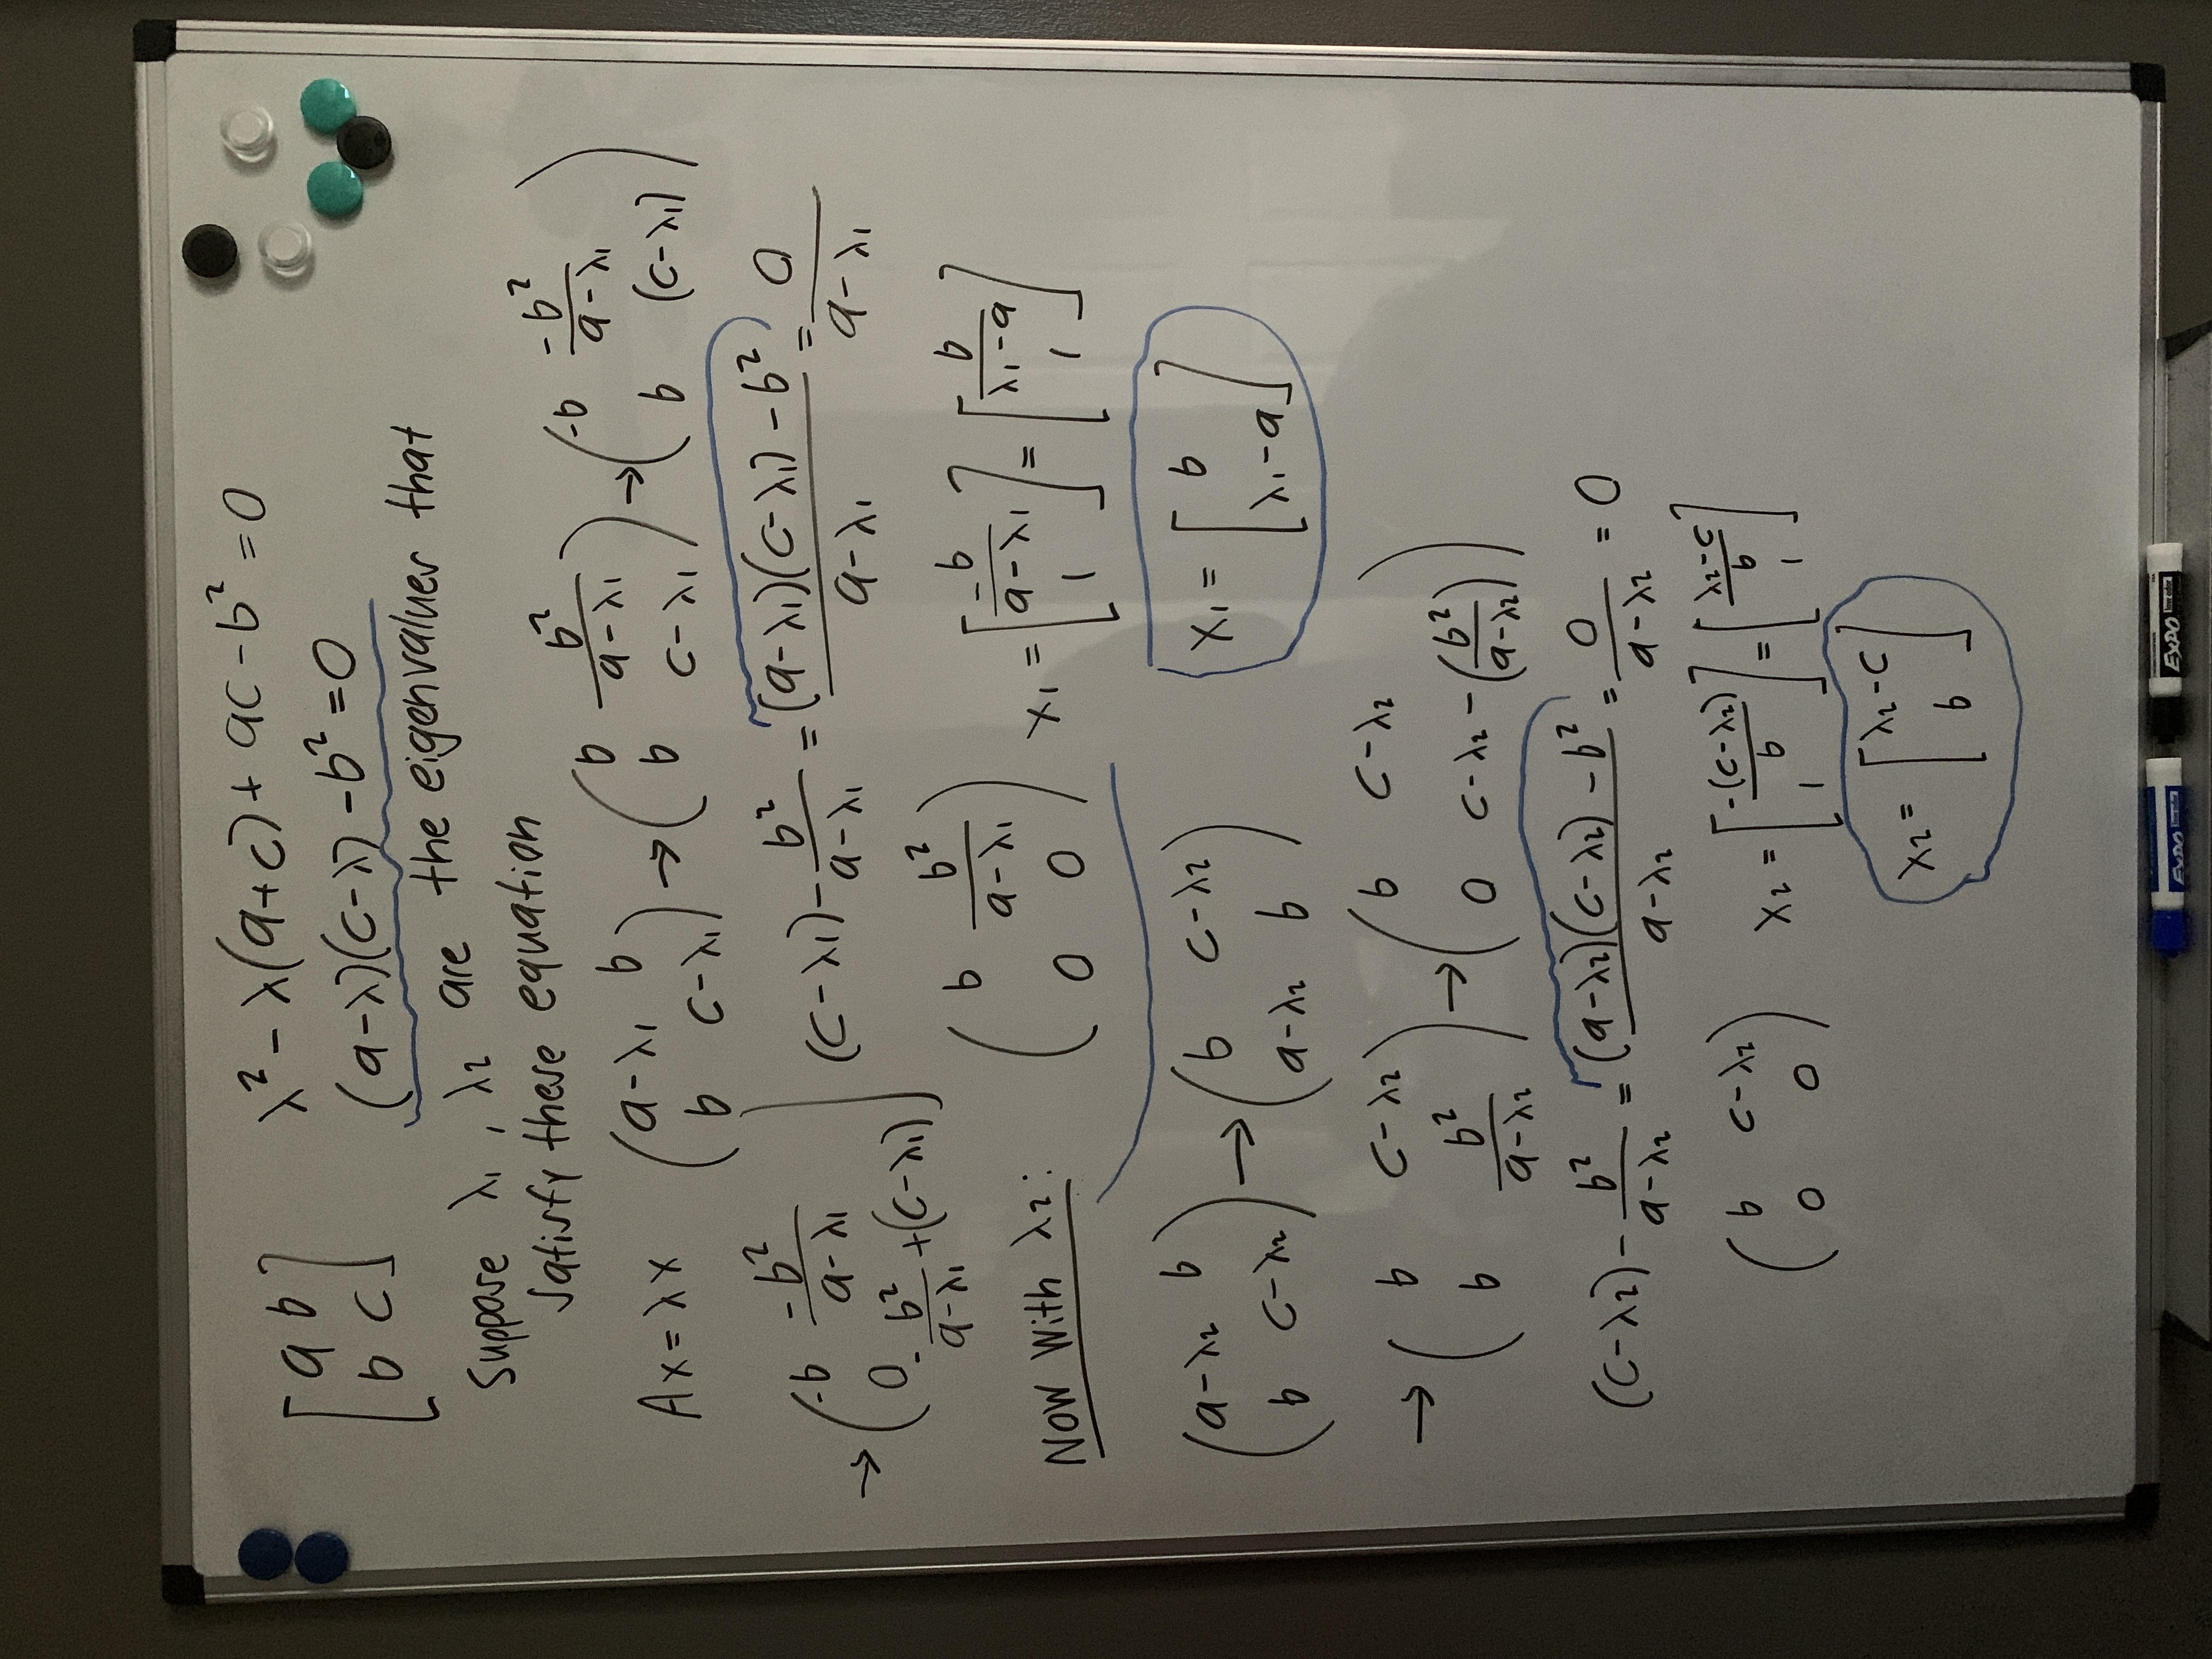 [a b; b c] λ² - λ(a+c) + ac - b² = 0
(a-λ)(c-λ) - b² = 0
Suppose λ₁, λ₂ are the eigenvalues that
satisfy these equation
Ax = λx (a-λ₁ b; b c-λ₁) → (b b²/(a-λ₁); b c-λ₁) → (-b -b²/(a-λ₁); b (c-λ₁))
→ (-b -b²/(a-λ₁); 0 -b²/(a-λ₁)+(c-λ₁)] (c-λ₁) - b²/(a-λ₁) = ((a-λ₁)(c-λ₁) - b²)/(a-λ₁) = 0/(a-λ₁)
(b b²/(a-λ₁); 0 0) x₁ = [-b/(a-λ₁); 1] = [b/(λ₁-a); 1]
x₁ = [b; λ₁-a]
Now With λ₂:
(a-λ₂ b; b c-λ₂) → (b c-λ₂; a-λ₂ b)
→ (b c-λ₂; b b²/(a-λ₂)) → (b c-λ₂; 0 c-λ₂-(b²/(a-λ₂)))
(c-λ₂) - b²/(a-λ₂) = ((a-λ₂)(c-λ₂) - b²)/(a-λ₂) = 0/(a-λ₂) = 0
(b c-λ₂; 0 0) x₂ = [-(c-λ₂)/b; 1] = [(λ₂-c)/b; 1]
x₂ = [λ₂-c; b]
EXPO low odor EXPO low odor